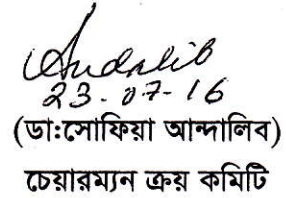 Andalib
23-07-16
(ডা:সোফিয়া আন্দালিব)
চেয়ারম্যন ক্রয় কমিটি